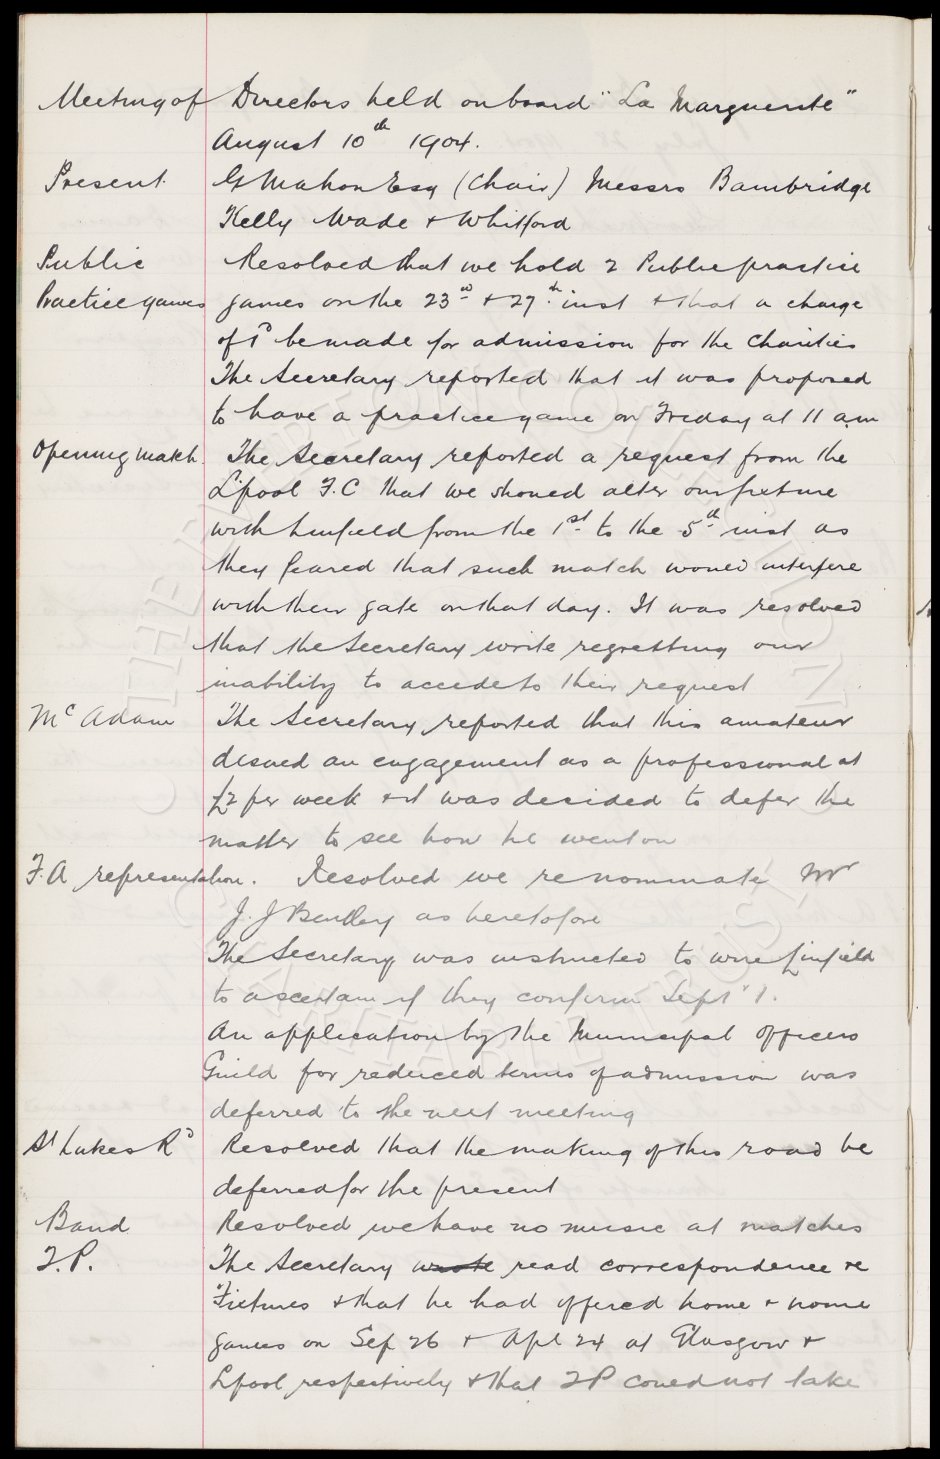 Meeting of Directors held on board "La Marguerite"
August 10th 1904.
Present G Mahon Esq (Chair) Messrs Bambridge
Kelly Wade & Whitford
Public Resolved that we hold 2 Public practise
Practice games games on the 23rd & 27th inst & that a charge
of 1d be made for admission for the Charities
The Secretary reported that it was proposed
to have a practice game on Friday at 11 am
Opening match. The Secretary reported a request from the
L'pool F.C that we should alter our fixture
with Linfield from the 1st to the 5th inst as
they feared that such match would interfere
with their gate on that day. It was resolved
that the Secretary write regretting our
inability to accede to their request
McAdam The Secretary reported that this amateur
desired an engagement as a professional at
£2 per week & it was decided to defer the
matter to see how he went on
F.A representation. Resolved we renominate Mr
J. J Bentley as heretofore
The Secretary was instructed to wire Linfield
to ascertain if they confirm Sept 1.
An application by the Municipal Officers
Guild for reduced terms of admission was
deferred to the next meeting
St Lukes Rd Resolved that the making of this road be
deferred for the present
Band Resolved we have no music at matches
T.P. The Secretary wrote read correspondence re
Fixtures & that he had offered home & home
games on Sep 26 & Apl 24 at Glasgow &
Lpool respectively & that TP could not take